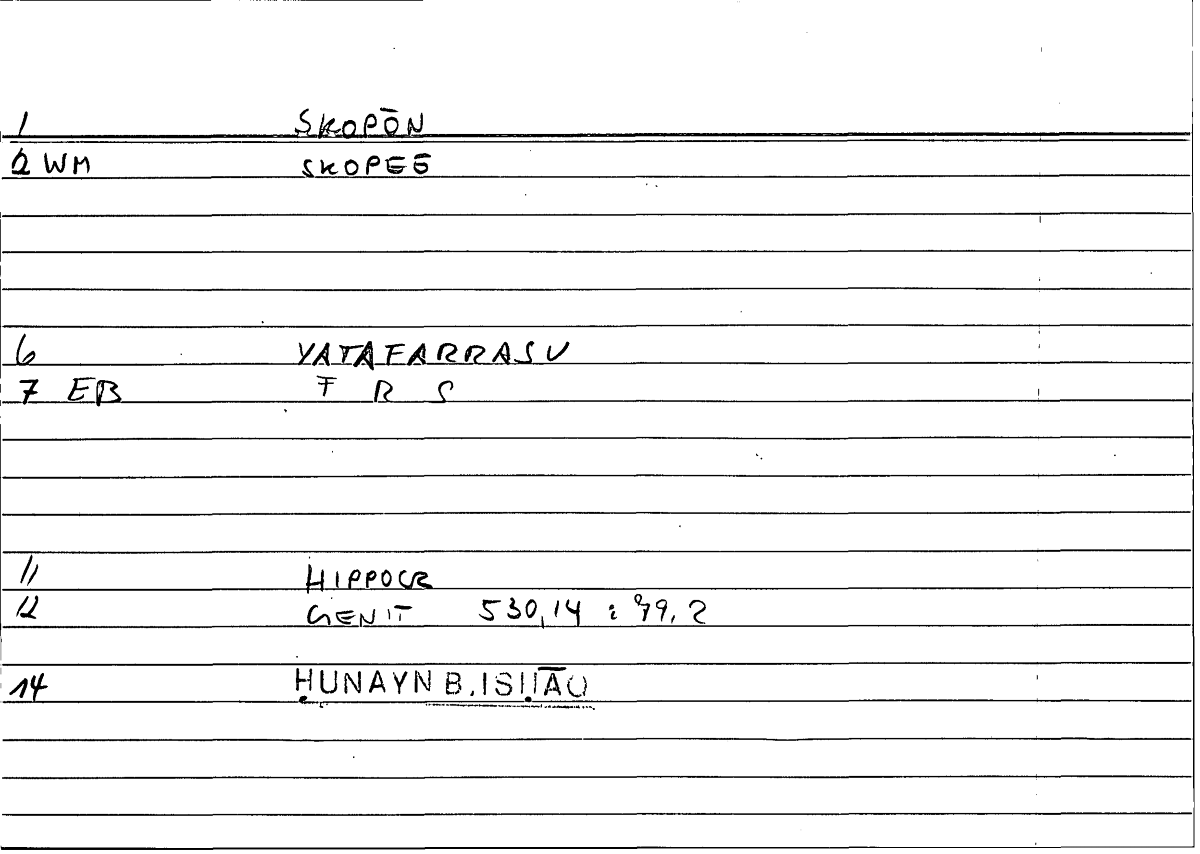 1 SKOPŌN
2 WM SKOPEŌ
6 YATAFARRASU
7 EB F R S
11 HIPPOCR
12 GENIT 530,14 : 79,2
14 ḤUNAYN B. ISḤĀQ